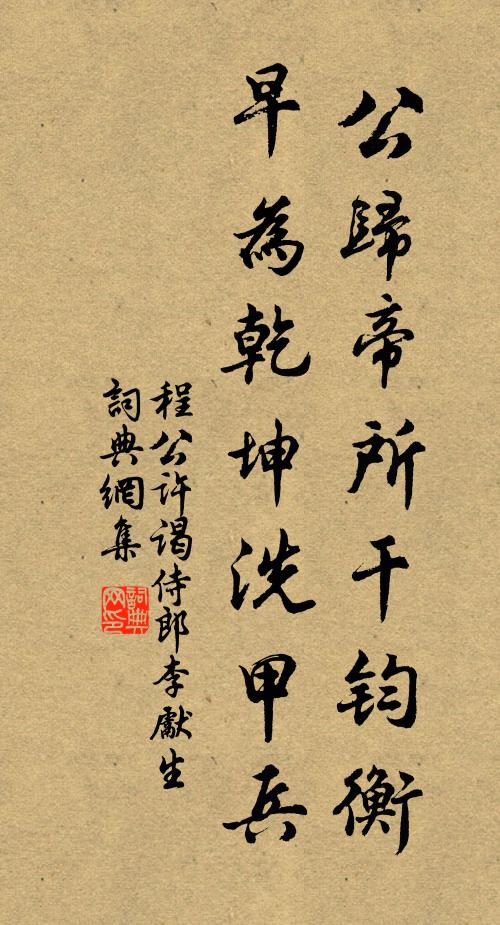 公歸帝所干鈞衡
早為乾坤洗甲兵
程公許謁侍郎李獻生
詞典網集
詞典网印